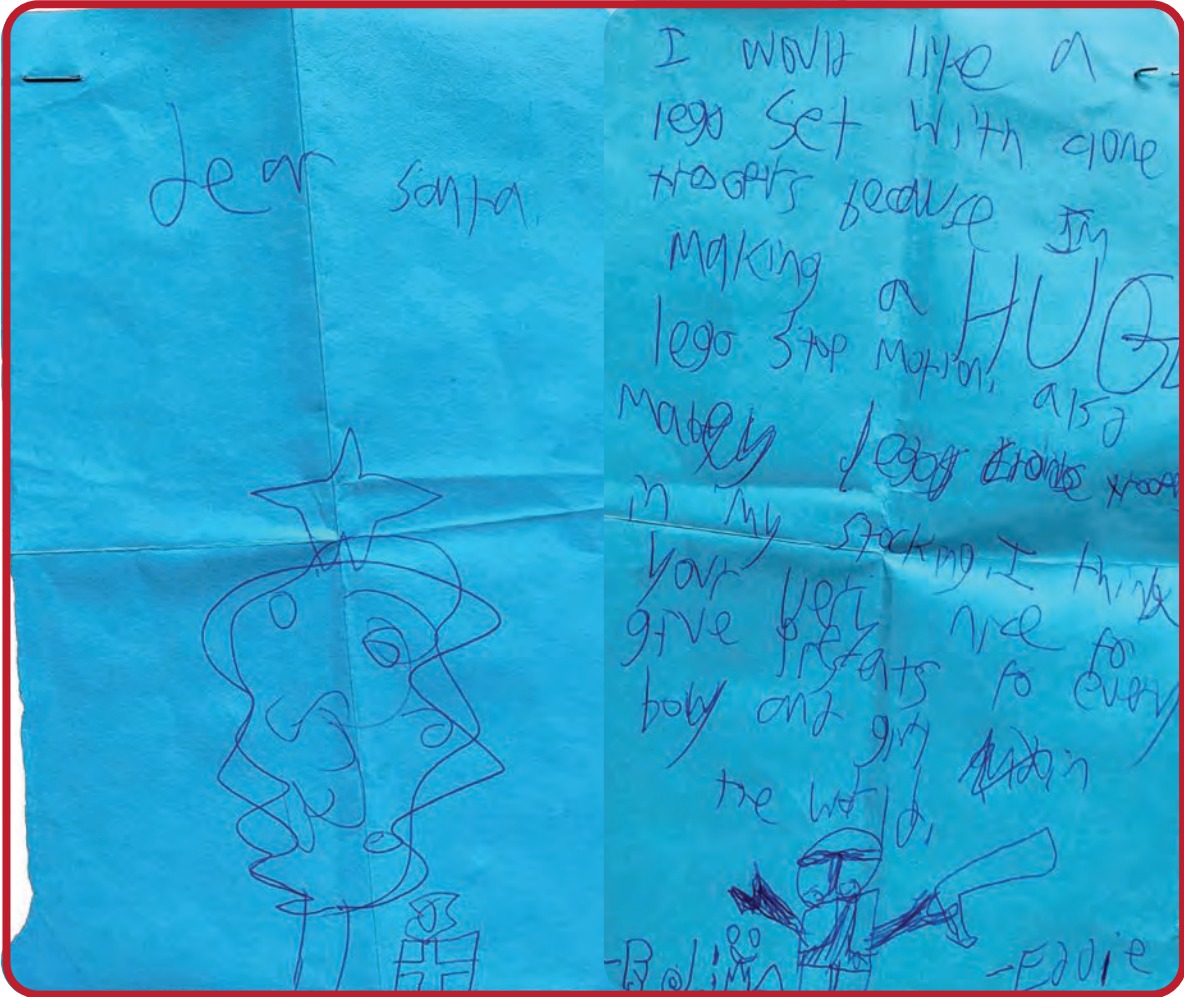 dear santa.
I would like a
lego set with clone
because Im
making a HUGE
lego stop motion. also
in my stocking. I think
your very nice for
give presents to every
body and in
the world.
-Eddie